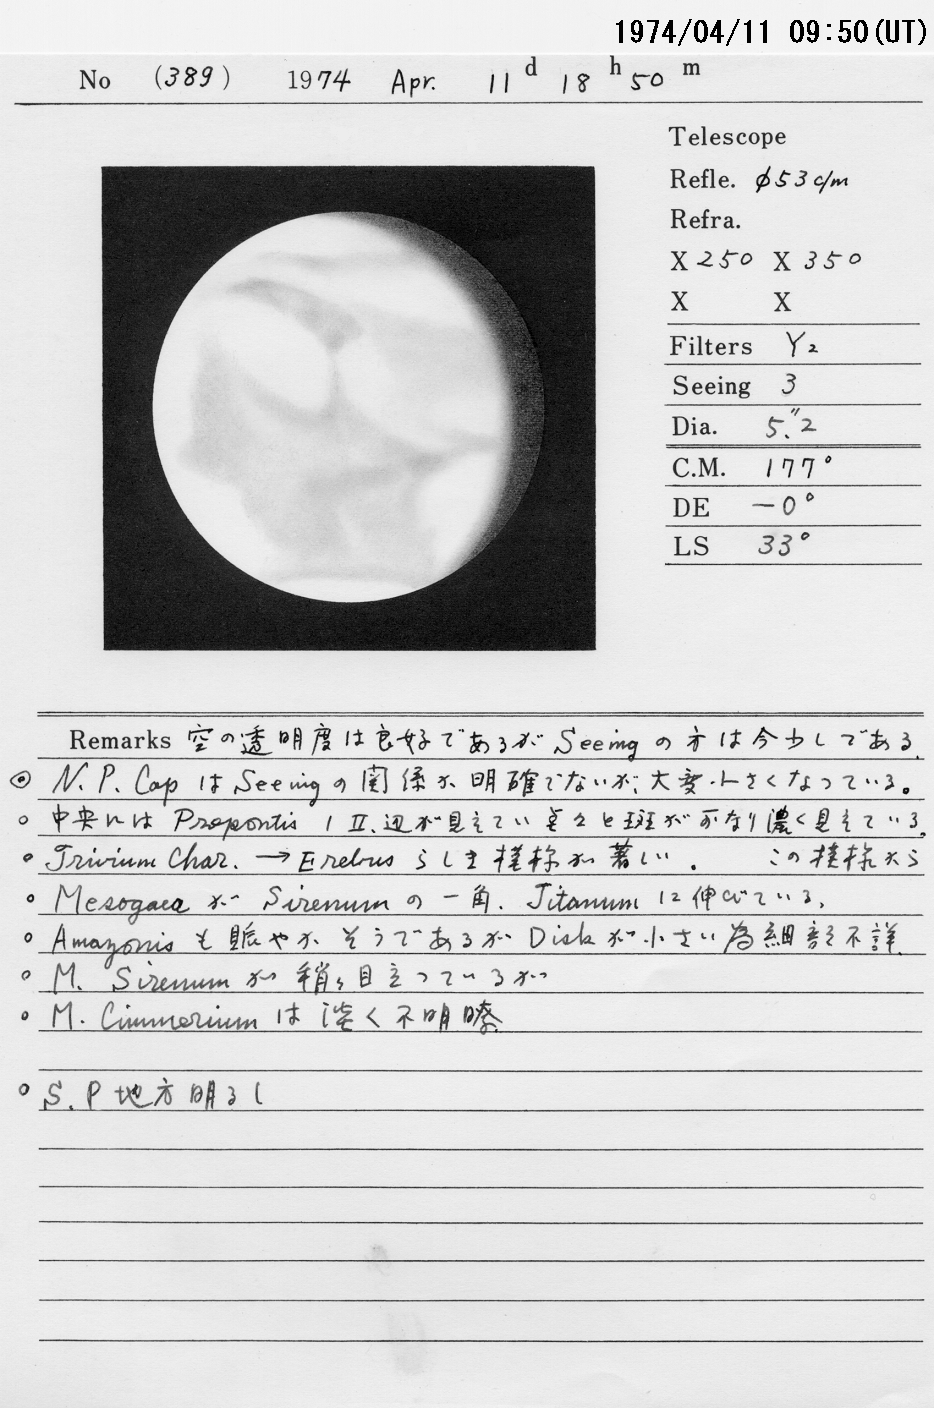 1974/04/11 09:50(UT)
No (389) 1974 Apr. 11 d 18 h 50 m
Telescope
Refle. φ53 c/m
Refra.
X 250 X 350
X X
Filters Y₂
Seeing 3
Dia. 5.″2
C.M. 177°
DE −0°
LS 33°
Remarks 空の透明度は良好であるが Seeing の方は今少しである.
◎ N. P. Cap は Seeing の関係か、明確でないが、大変小さくなっている。
○ 中央には Propontis I II、辺が見えてい 点々と斑が可なり濃く見えている。
○ Trivium Char. → Erebus らしき模様が著しい. この模様から
○ Mesogaea が Sirenum の一角. Titanum に伸びている.
○ Amazonis も賑やか そうであるが Disk が小さい為細部不詳
○ M. Sirenum が稍々目立っているが
○ M. Cimmerium は淡く不明瞭
○ S. P 地方明るし